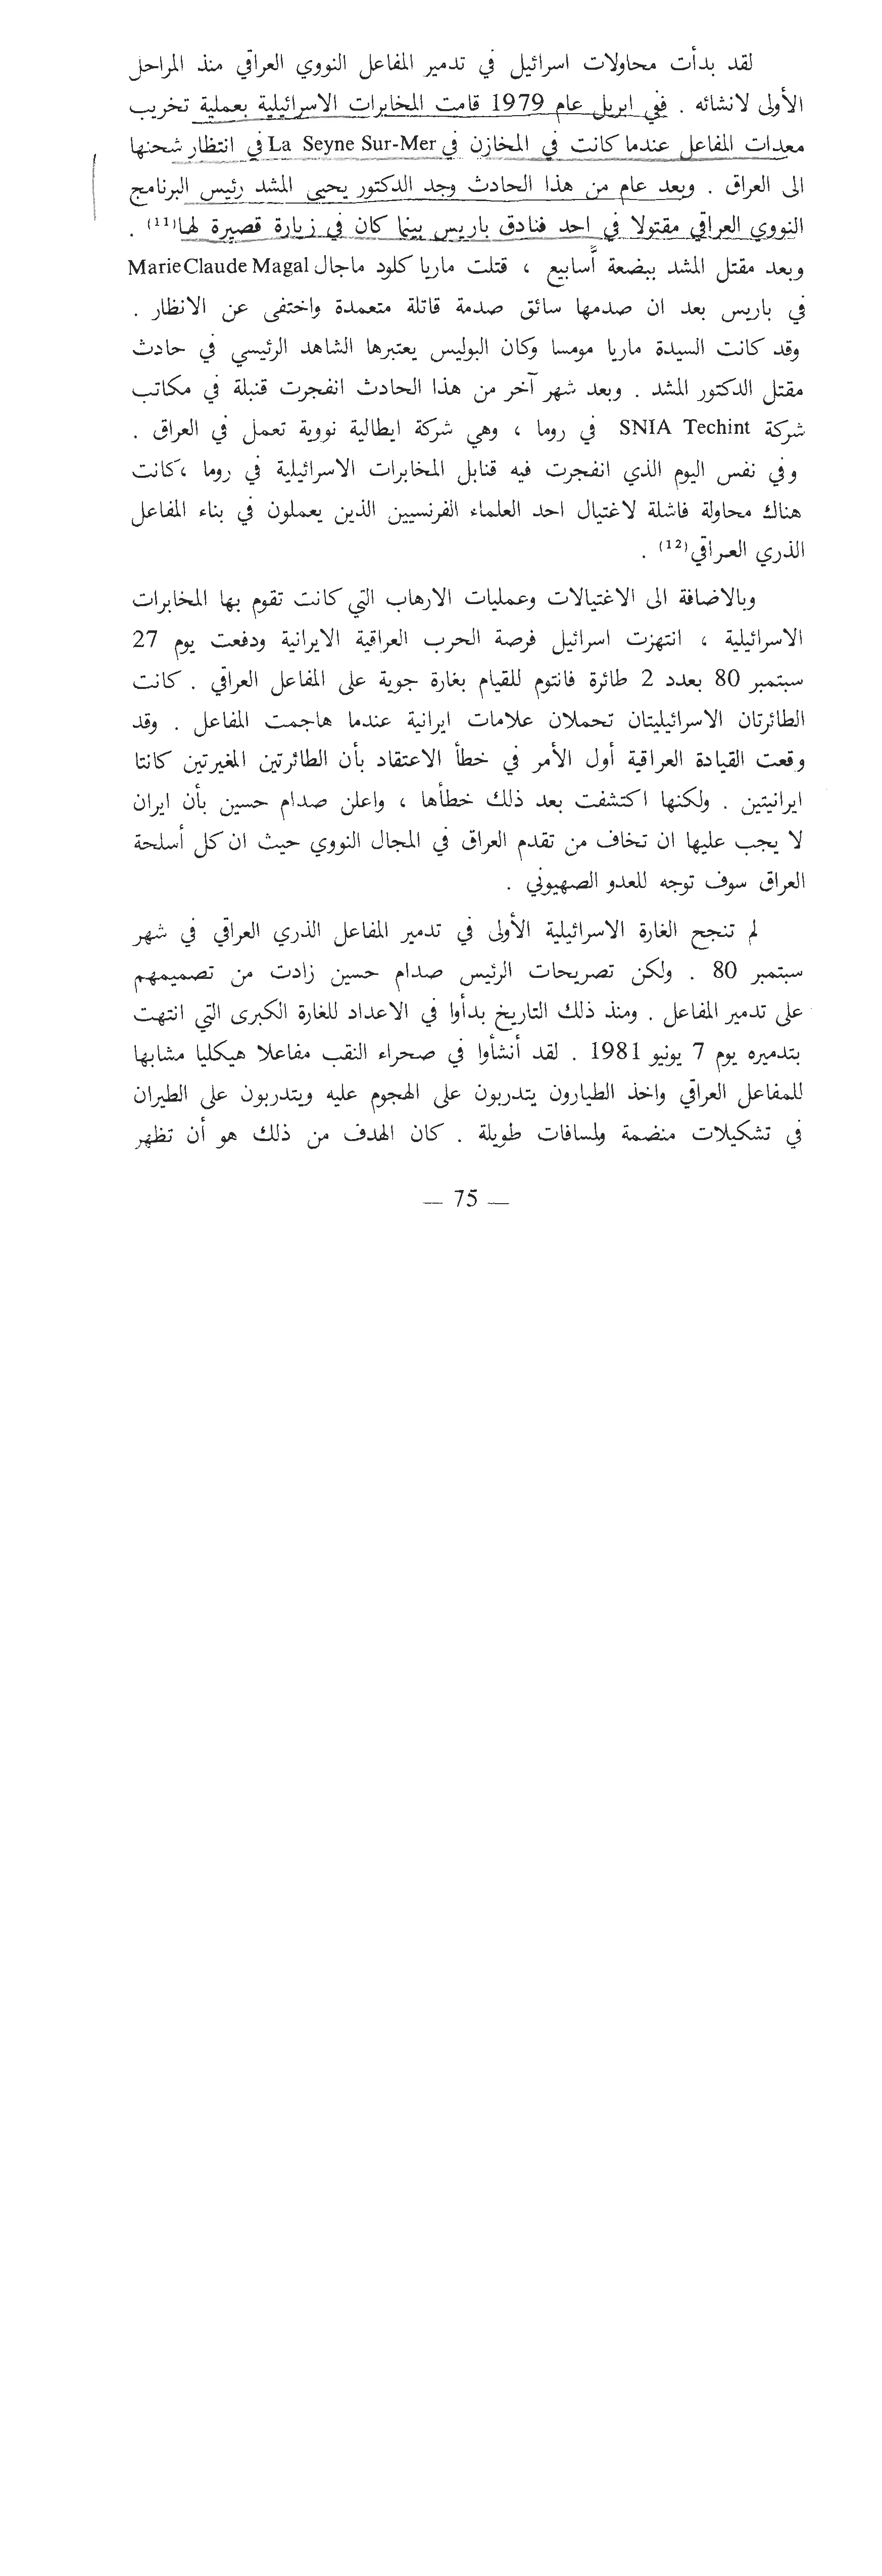 لقد بدأت محاولات اسرائيل في تدمير المفاعل النووي العراقي منذ المراحل
الأولى لانشائه . ففي ابريل عام 1979 قامت المخابرات الاسرائيلية بعملية تخريب
معدات المفاعل عندما كانت في المخازن في La Seyne Sur-Mer في انتظار شحنها
الى العراق . وبعد عام من هذا الحادث وجد الدكتور يحيى المشد رئيس البرنامج
النووي العراقي مقتولا في احد فنادق باريس بينما كان في زيارة قصيرة لها(11) .
وبعد مقتل المشد ببضعة أسابيع ، قتلت ماريا كلود ماجال Marie Claude Magal
في باريس بعد ان صدمها سائق صدمة قاتلة متعمدة واختفى عن الانظار .
وقد كانت السيدة ماريا مومسا وكان البوليس يعتبرها الشاهد الرئيسي في حادث
مقتل الدكتور المشد . وبعد شهر آخر من هذا الحادث انفجرت قنبلة في مكاتب
شركة SNIA Techint في روما ، وهي شركة ايطالية نووية تعمل في العراق .
وفي نفس اليوم الذي انفجرت فيه قنابل المخابرات الاسرائيلية في روما ،كانت
هناك محاولة فاشلة لاغتيال احد العلماء الفرنسيين الذين يعملون في بناء المفاعل
الذري العراقي(12) .
وبالاضافة الى الاغتيالات وعمليات الارهاب التي كانت تقوم بها المخابرات
الاسرائيلية ، انتهزت اسرائيل فرصة الحرب العراقية الايرانية ودفعت يوم 27
سبتمبر 80 بعدد 2 طائرة فانتوم للقيام بغارة جوية على المفاعل العراقي . كانت
الطائرتان الاسرائيليتان تحملان علامات ايرانية عندما هاجمت المفاعل . وقد
وقعت القيادة العراقية أول الأمر في خطأ الاعتقاد بأن الطائرتين المغيرتين كانتا
ايرانيتين . ولكنها اكتشفت بعد ذلك خطأها ، واعلن صدام حسين بأن ايران
لا يجب عليها ان تخاف من تقدم العراق في المجال النووي حيث ان كل أسلحة
العراق سوف توجه للعدو الصهيوني .
لم تنجح الغارة الاسرائيلية الأولى في تدمير المفاعل الذري العراقي في شهر
سبتمبر 80 . ولكن تصريحات الرئيس صدام حسين زادت من تصميمهم
على تدمير المفاعل . ومنذ ذلك التاريخ بدأوا في الاعداد للغارة الكبرى التي انتهت
بتدميره يوم 7 يونيو 1981 . لقد أنشأوا في صحراء النقب مفاعلا هيكليا مشابها
للمفاعل العراقي واخذ الطيارون يتدربون على الهجوم عليه ويتدربون على الطيران
في تشكيلات منضمة ولمسافات طويلة . كان الهدف من ذلك هو أن تظهر
— 75 —